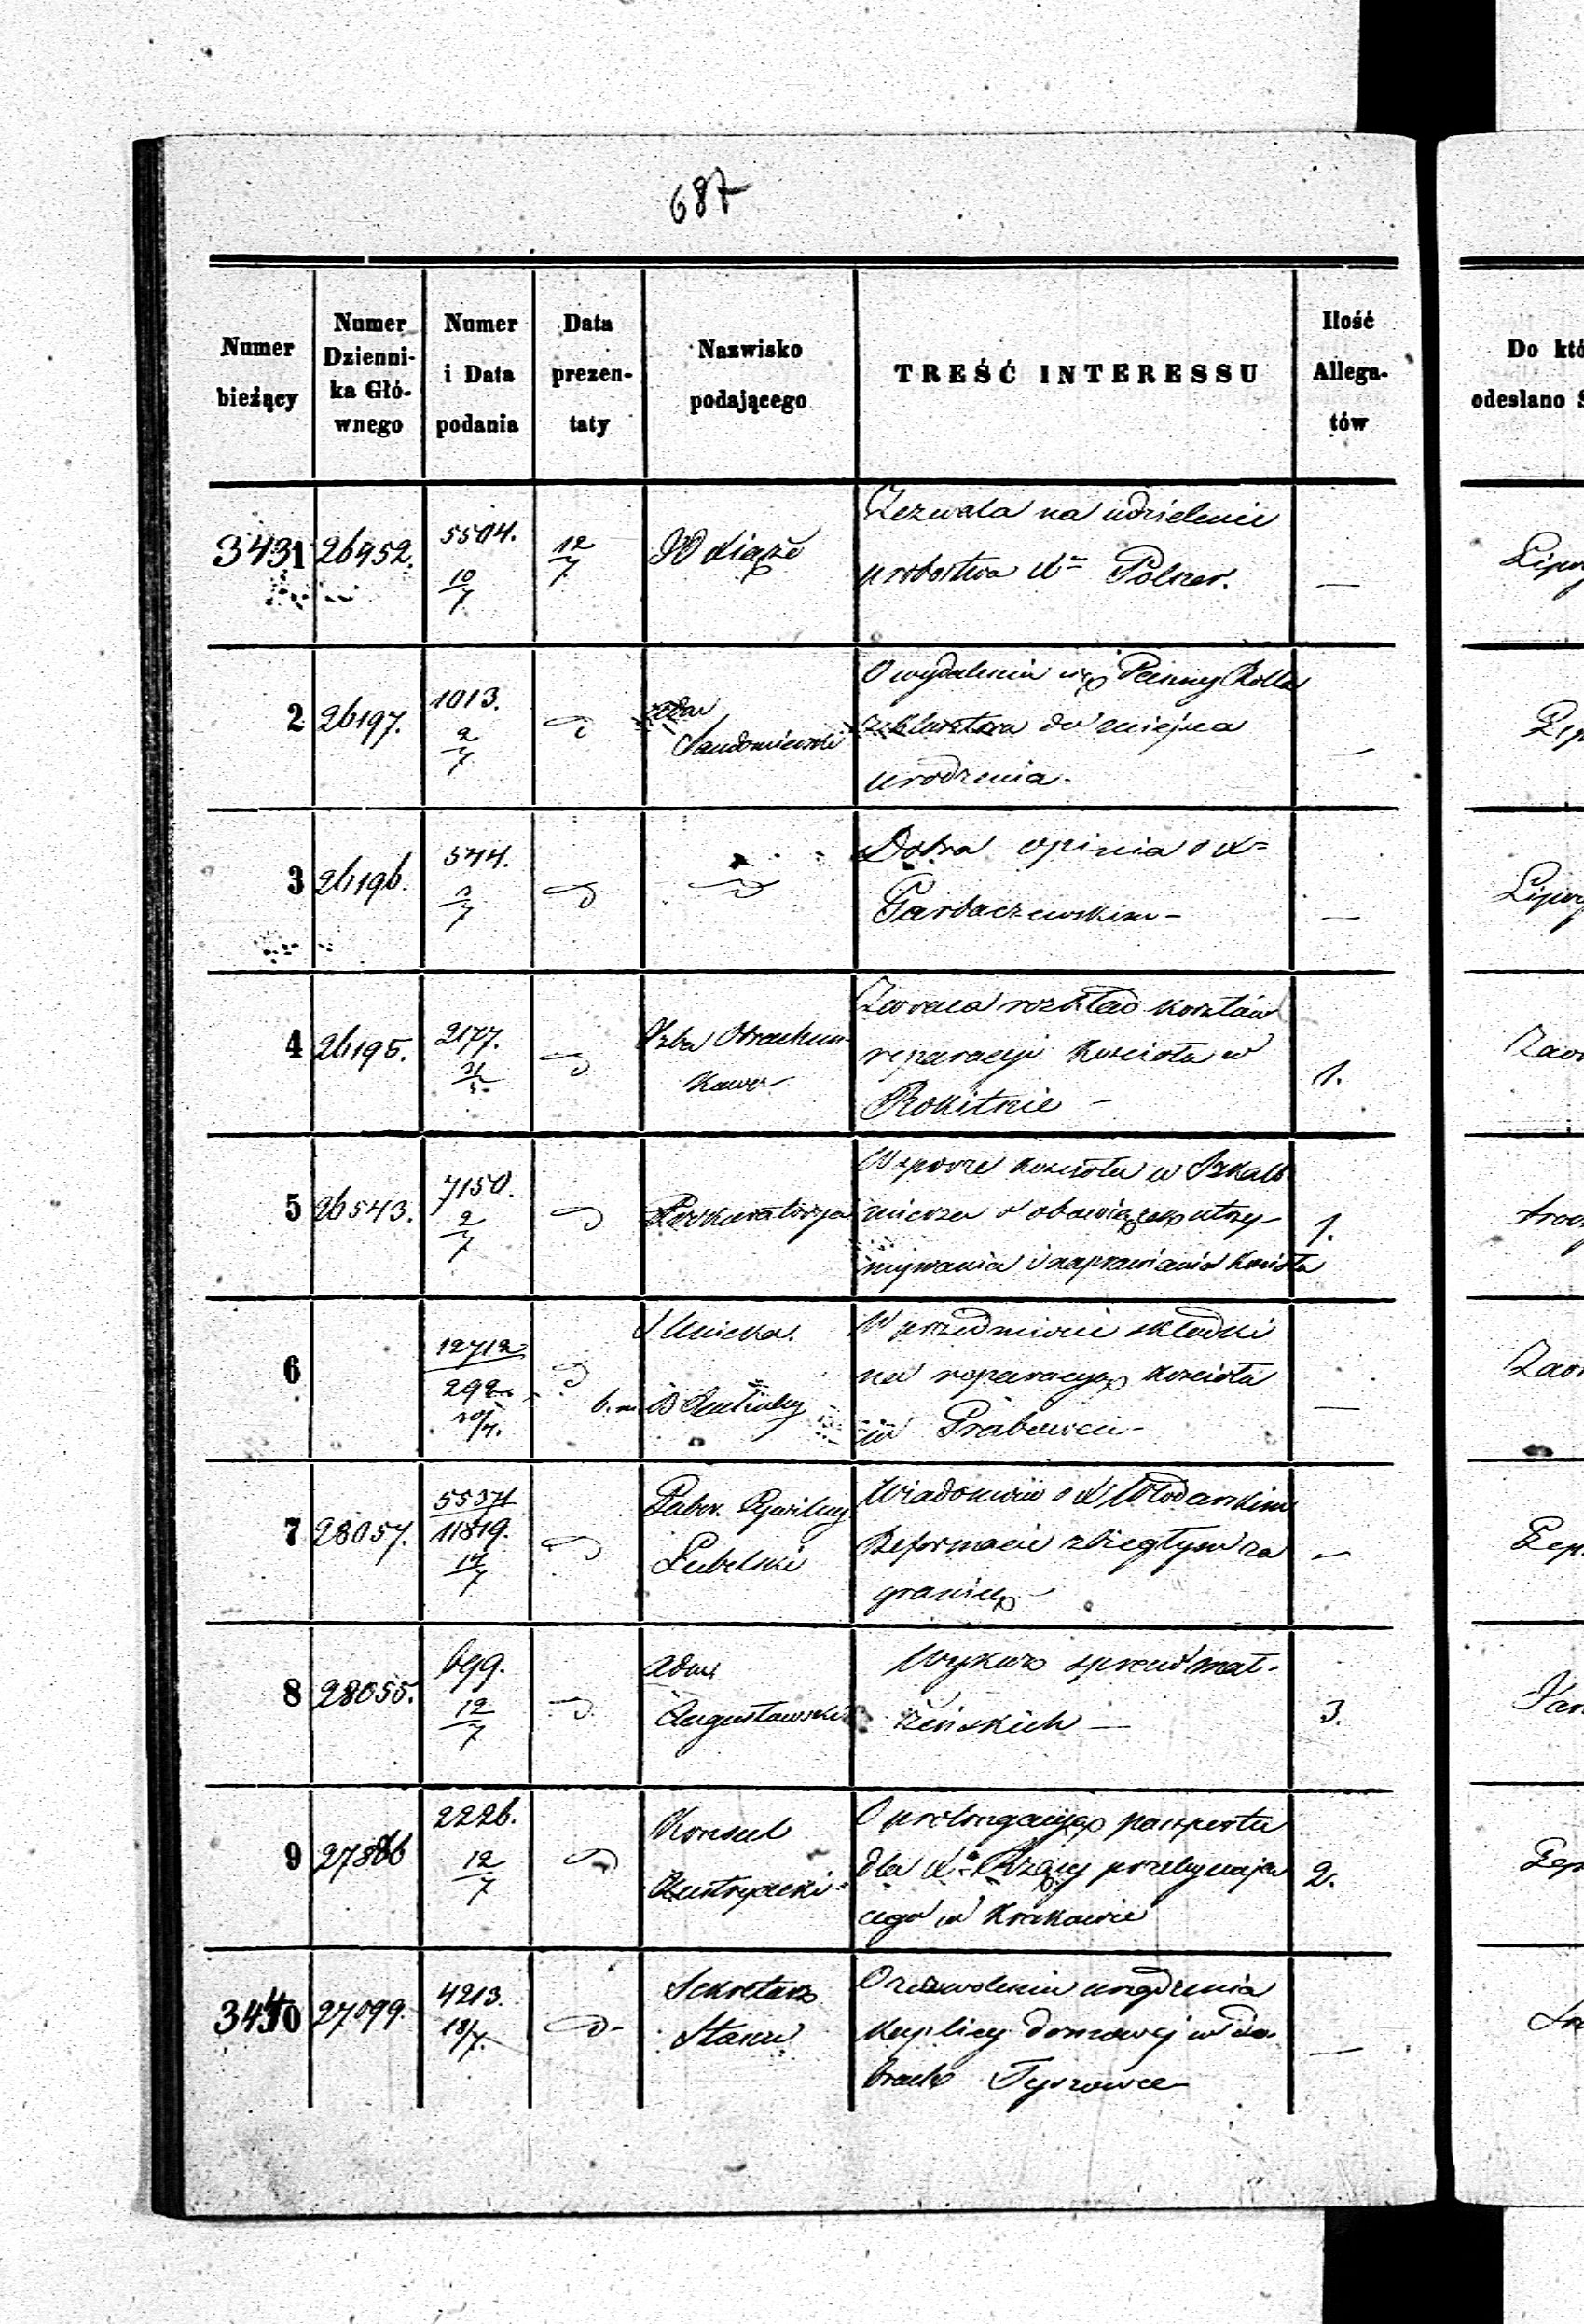 687
Numer bieżący
Numer Dzienni- ka Głó- wnego
Numer i Data podania
Data prezen- taty
Nazwisko podającego
TREŚĆ INTERESSU
Ilość Allega- tów
Do któ
odesłano
3431 26452. 5504. 10/7 12/7 JO Xiąże
Zezwala na udzielenie
probostwa X= Polner. —
2 26197. 1013. 2/7
Sandomierski
O wydalenie się Panny Rolla
z klasztoru do miejsca
urodzenia. —
3 26196. 544. 3/7
Dobra opinia o X=
Garbaczewskim — —
4 26195. 2177. Izba Obrachun-
kowa
Zwraca rozkład kosztów
reparacyi Kościoła w
Rokitnie — 1.
5 26543. 7150. 2/7 Prokuratorya
W sporze kościoła w Szkalb-
mierzu o obowiązek utrzy-
mywania i naprawiania kościoła 1.
6 12712 292
W przedmiocie składki
na reparacyę kościoła
w Grabowcu — —
7 28057. 5537 11819. 17/7 Guber. Cywilny
Lubelski
Wiadomość o X Włodarskim
Reformacie zbiegłym za
granicę — —
8 28055. 699. 12/7 Adm.
Augustowski
Wykaz spraw mał-
żeńskich — 3.
9 27866 2226. 12/7 Konsul
Austryacki
O prolongacyę paszportu
dla X= Rząsy przebywają
cego w Krakowie 2.
3440 27099. 4213. 18/7. Sekretarz
Stanu
O zezwolenie urządzenia
Kaplicy domowej w do-
brach Tyszowce —